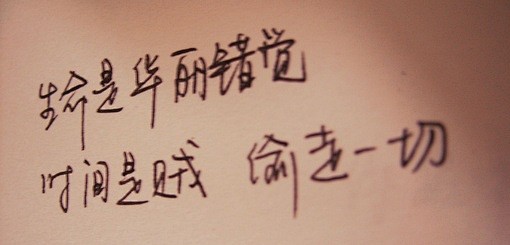 生命是华丽错觉
时间是贼 偷走一切